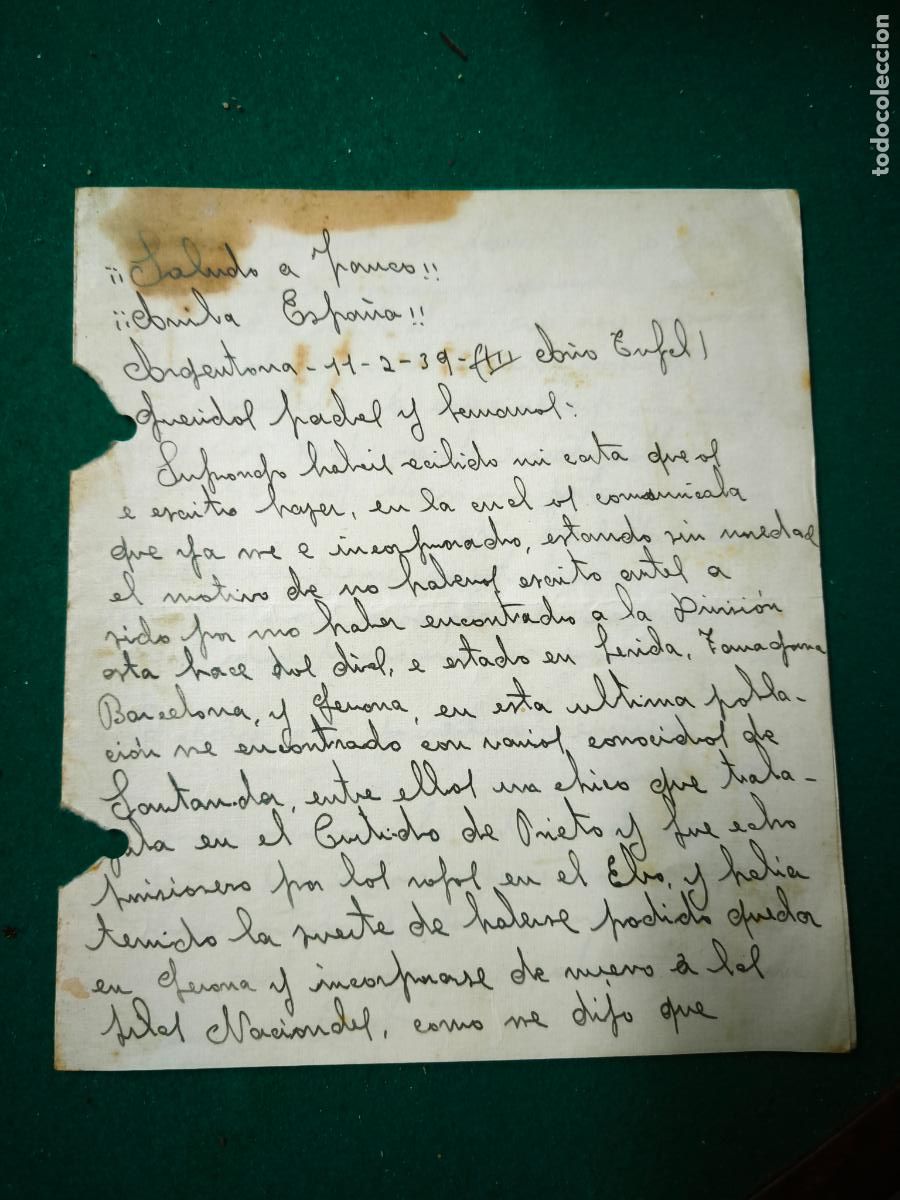 ¡¡Saludo a Franco!!
¡¡Arriba España!!
Argentona - 11 - 2 - 39 - (III Año Triufal)
Queridos padres y hermanos:
Supongo habeis recibido mi carta que os
e escrito hayer, en la cual os comunicaba
que ya me e incorporado, estando sin novedad
el motivo de no haberos escrito antes a
sido por no haber encontrado a la División
asta hace dos dias, e estado en Lerida, Tarragona
Barcelona, y Gerona, en esta ultima pobla-
ción me encontrado con varios conocidos de
Santander, entre ellos un chico que traba-
jaba en el Curtido de Prieto y fue echo
prisionero por los rojos en el Ebro, y habia
tenido la suerte de haberse podido quedar
en Gerona y incorporarse de nuevo a las
filas Nacionales, como me dijo que
todocoleccion